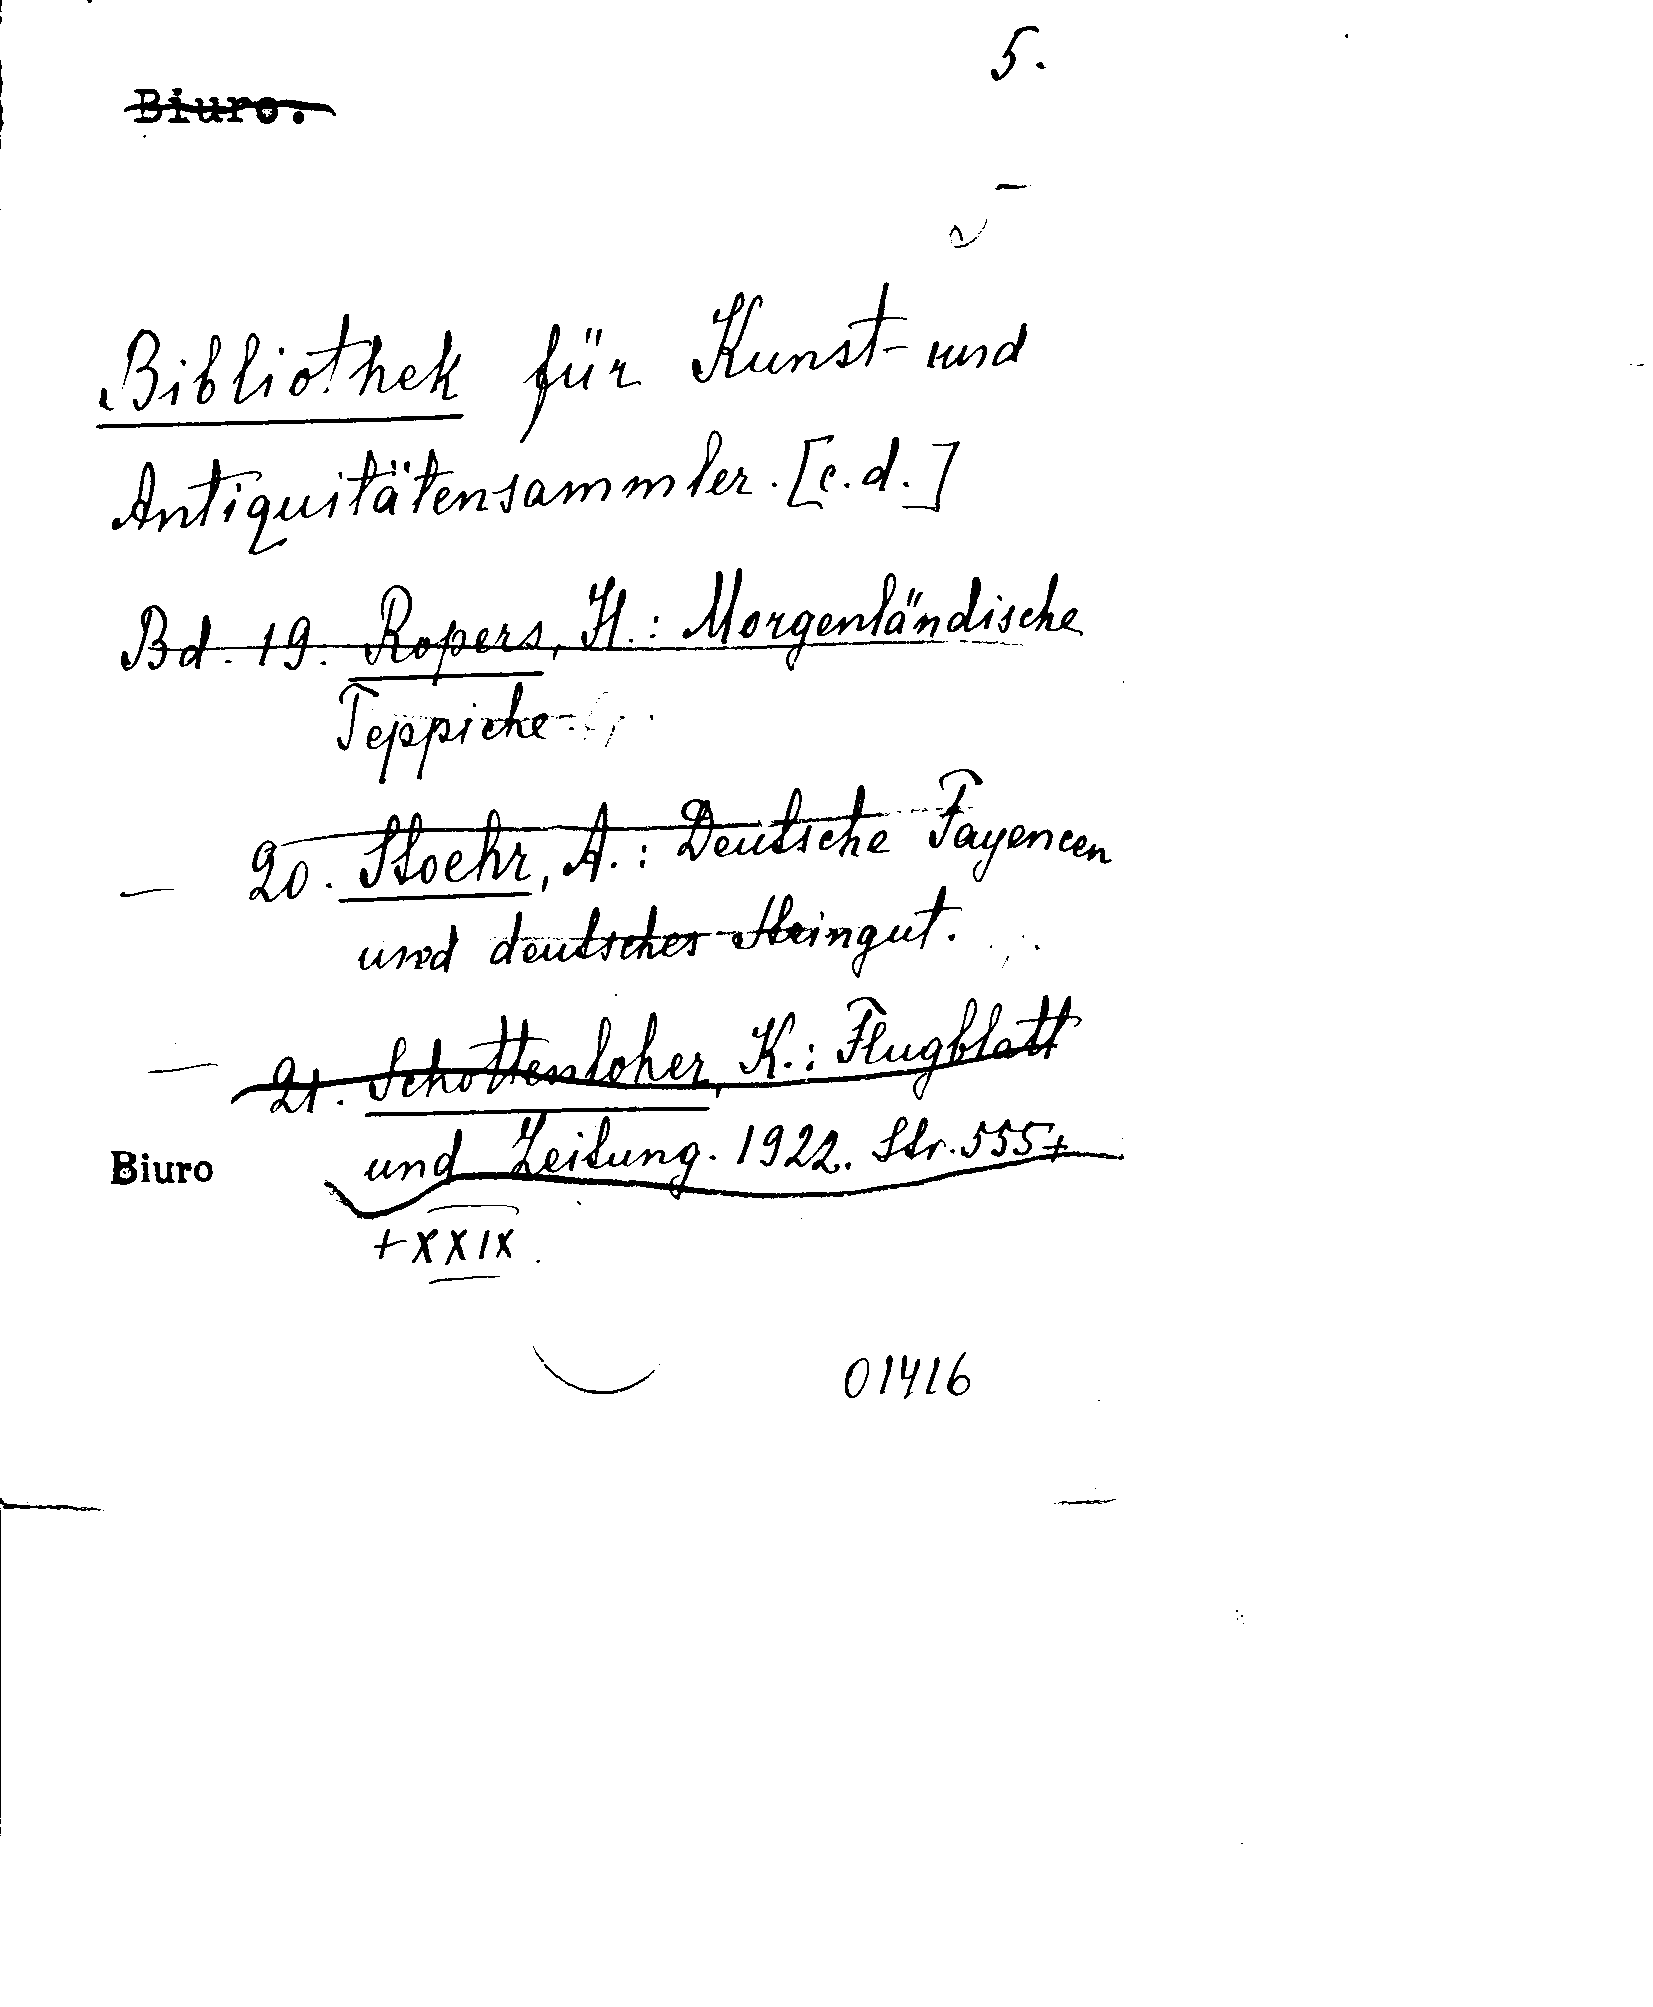 5.
Biuro.
Bibliothek für Kunst- und
Antiquitätensammler. [c.d.]
Bd. 19. Ropers, H.: Morgenländische
Teppiche
— 20. Stoehr, A.: Deutsche Fayencen
und deutsches Steingut.
— 21. Schottenloher, K.: Flugblatt
und Zeitung. 1922. Str. 555+
Biuro
+XXIX.
01416